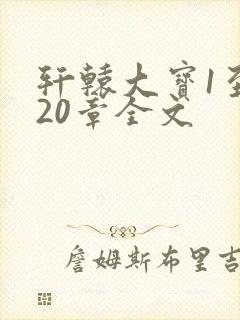 轩辕大宝1至
20章全文
詹姆斯布里吉